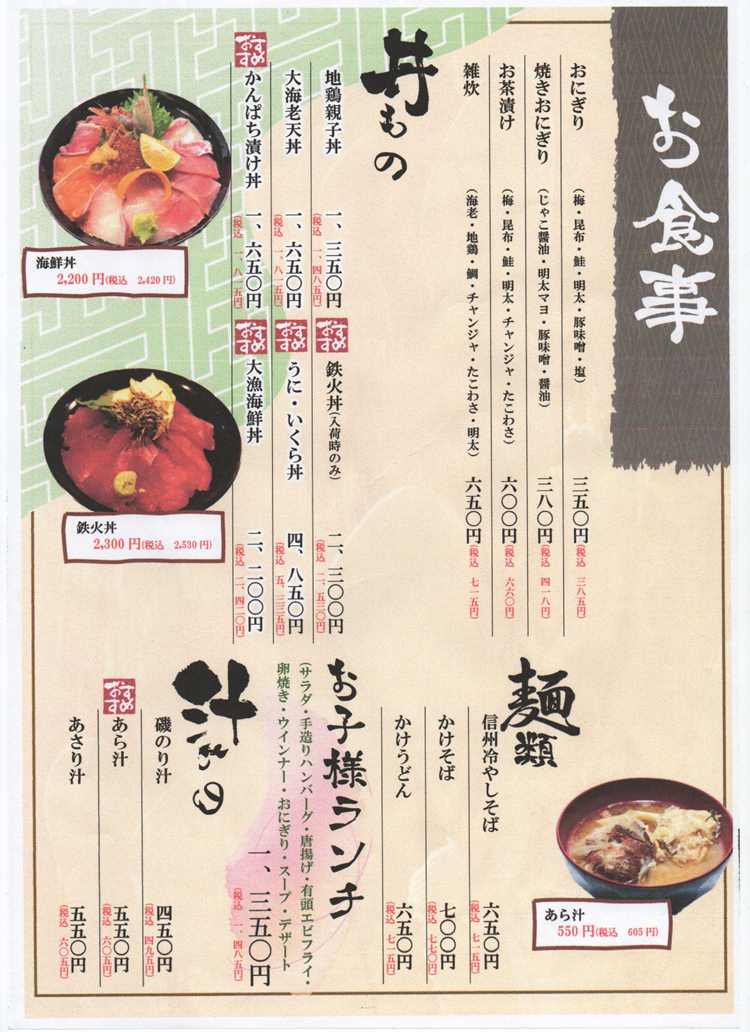 お食事
おにぎり (梅・昆布・鮭・明太・豚味噌・塩) 三五〇円 (税込 三八五円)
焼きおにぎり (じゃこ醤油・明太マヨ・豚味噌・醤油) 三八〇円 (税込 四一八円)
お茶漬け (梅・昆布・鮭・明太・チャンジャ・たこわさ) 六〇〇円 (税込 六六〇円)
雑炊 (海老・地鶏・鯛・チャンジャ・たこわさ・明太) 六五〇円 (税込 七一五円)
丼もの
地鶏親子丼 一、三五〇円 (税込 一、四八五円)
大海老天丼 一、六五〇円 (税込 一、八一五円)
おすすめ かんぱち漬け丼 一、六五〇円 (税込 一、八一五円)
おすすめ 鉄火丼(入荷時のみ) 二、三〇〇円 (税込 二、五三〇円)
おすすめ うに・いくら丼 四、八五〇円 (税込 五、三三五円)
おすすめ 大漁海鮮丼 二、二〇〇円 (税込 二、四二〇円)
海鮮丼
2,200円(税込 2,420円)
鉄火丼
2,300円(税込 2,530円)
麺類
信州冷やしそば 六五〇円 (税込 七一五円)
かけそば 七〇〇円 (税込 七七〇円)
かけうどん 六五〇円 (税込 七一五円)
あら汁
550円(税込 605円)
お子様ランチ
(サラダ・手造りハンバーグ・唐揚げ・有頭エビフライ・
卵焼き・ウインナー・おにぎり・スープ・デザート
一、三五〇円 (税込 一、四八五円)
汁もの
磯のり汁 四五〇円 (税込 四九五円)
おすすめ あら汁 五五〇円 (税込 六〇五円)
あさり汁 五五〇円 (税込 六〇五円)